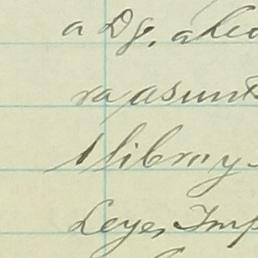 a Dg.
ra asunt
1 libro y
Leyes Imp